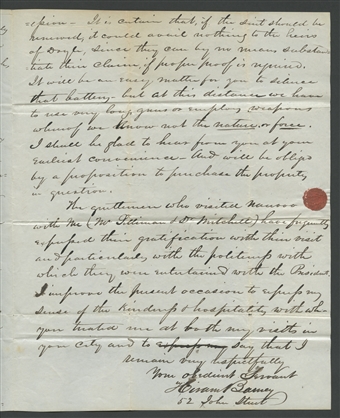 It is certain that, if the suit should be
renewed, it could avail nothing to the heirs
of Doyle, since they can by no means substan
tiate their claim, if proper proof is required.
It will be an easy matter for you to silence
that battery - but at this distance we have
to use very long guns or employ weapons
whereof we know not the nature or force.
I shall be glad to hear from you at your
earliest convenience - And will be obliged
by a proposition to purchase the property
in question.
The gentlemen who visited Nassau
with me (Mr Tillman & Dr Mitchell) have frequently
expressed their gratification with their visit
and particularly with the politeness with
which they were entertained with the President.
I improve the present occasion to express my
sense of the kindness & hospitality with which
you treated me at both my visits in
your city and to say that I
remain very respectfully
Your obedient Servant
Hiram Barney
52 John Street